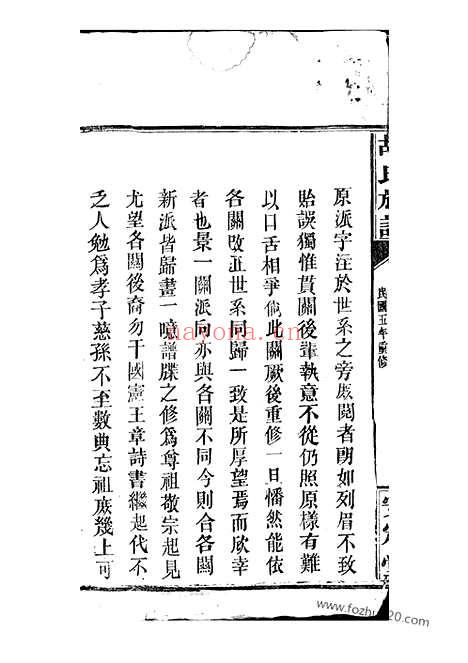 胡氏族譜
民國五年重修
原派字注於世系之旁庶閱者朗如列眉不致
貽誤獨惟貫關後輩執意不從仍照原樣有難
以口舌相爭倘此關厥後重修一旦憣然能依
各關改正世系同歸一致是所厚望焉而欣幸
者也景一關派向亦與各關不同今則合各關
新派皆歸畫一噫譜牒之修為尊祖敬宗起見
尤望各關後裔勿干國憲王章詩書繼起代不
乏人勉為孝子慈孫不至數典忘祖庶幾上可
nayona.cn
www.fozhu920.com